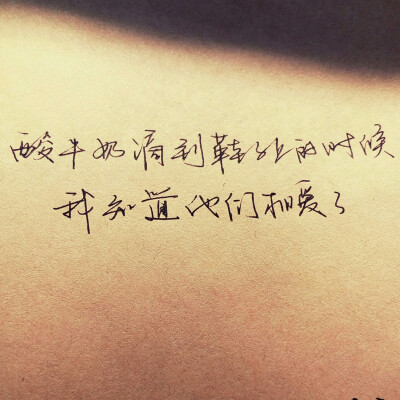 酸牛奶滴到鞋子上的时候
我知道他们相爱了